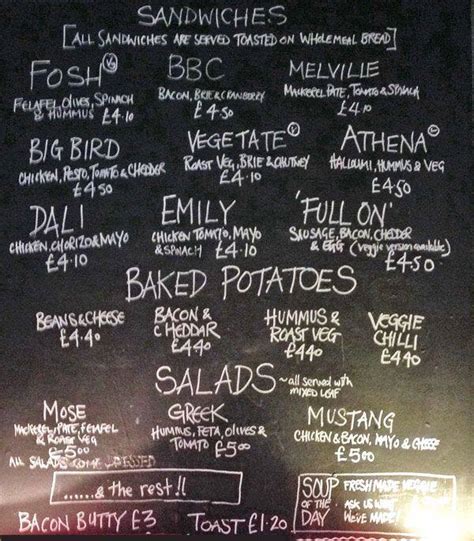 SANDWICHES
[ALL SANDWICHES ARE SERVED TOASTED ON WHOLEMEAL BREAD]
FOSH Vg
FELAFEL, OLIVES, SPINACH
& HUMMUS £4.10
BBC
BACON, BRIE & CRANBERRY
£4.50
MELVILLE
MACKEREL PATE, TOMATO & SPINACH
£4.10
BIG BIRD
CHICKEN, PESTO, TOMATO & CHEDDAR
£4.50
VEGETATE V
ROAST VEG, BRIE & CHUTNEY
£4.10
ATHENA
HALLOUMI, HUMMUS & VEG
£4.50
DALI
CHICKEN, CHORIZO & MAYO
£4.10
EMILY
CHICKEN TOMATO, MAYO
& SPINACH £4.10
'FULL ON'
SAUSAGE, BACON, CHEDDER
& EGG (veggie version available)
£4.50
BAKED POTATOES
BEANS & CHEESE
£4.40
BACON &
CHEDDAR
£4.40
HUMMUS &
ROAST VEG
£4.40
VEGGIE
CHILLI
£4.40
SALADS ~ all served with
MIXED LEAF
MOSE
MACKEREL, PATE, FELAFEL
& ROAST VEG
£5.00
GREEK
HUMMUS, FETA, OLIVES &
TOMATO £5.00
MUSTANG
CHICKEN & BACON, MAYO & CHEESE
£5.00
ALL SALADS COME DRESSED
......& the rest!!
BACON BUTTY £3
TOAST £1.20
SOUP
OF THE
DAY
FRESH MADE VEGGIE
ASK US WHAT
WE'VE MADE!